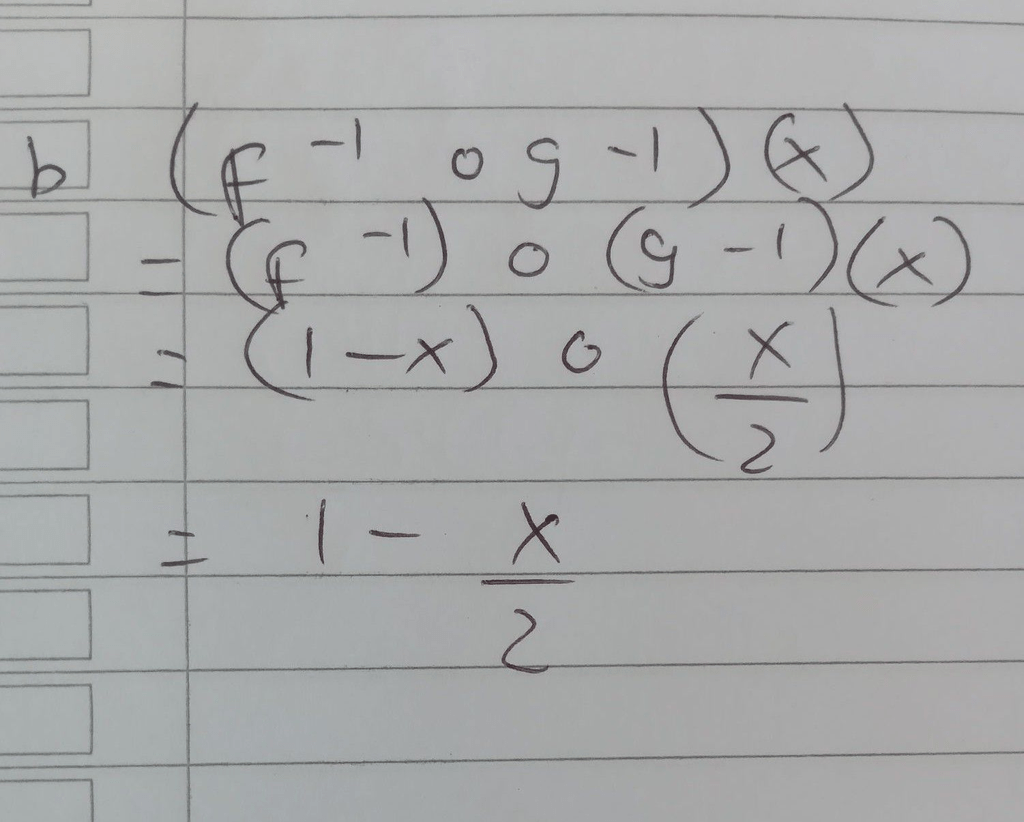 b (f⁻¹ o g⁻¹)(x)
= (f⁻¹) o (g⁻¹)(x)
= (1 - x) o (x/2)
= 1 - x/2